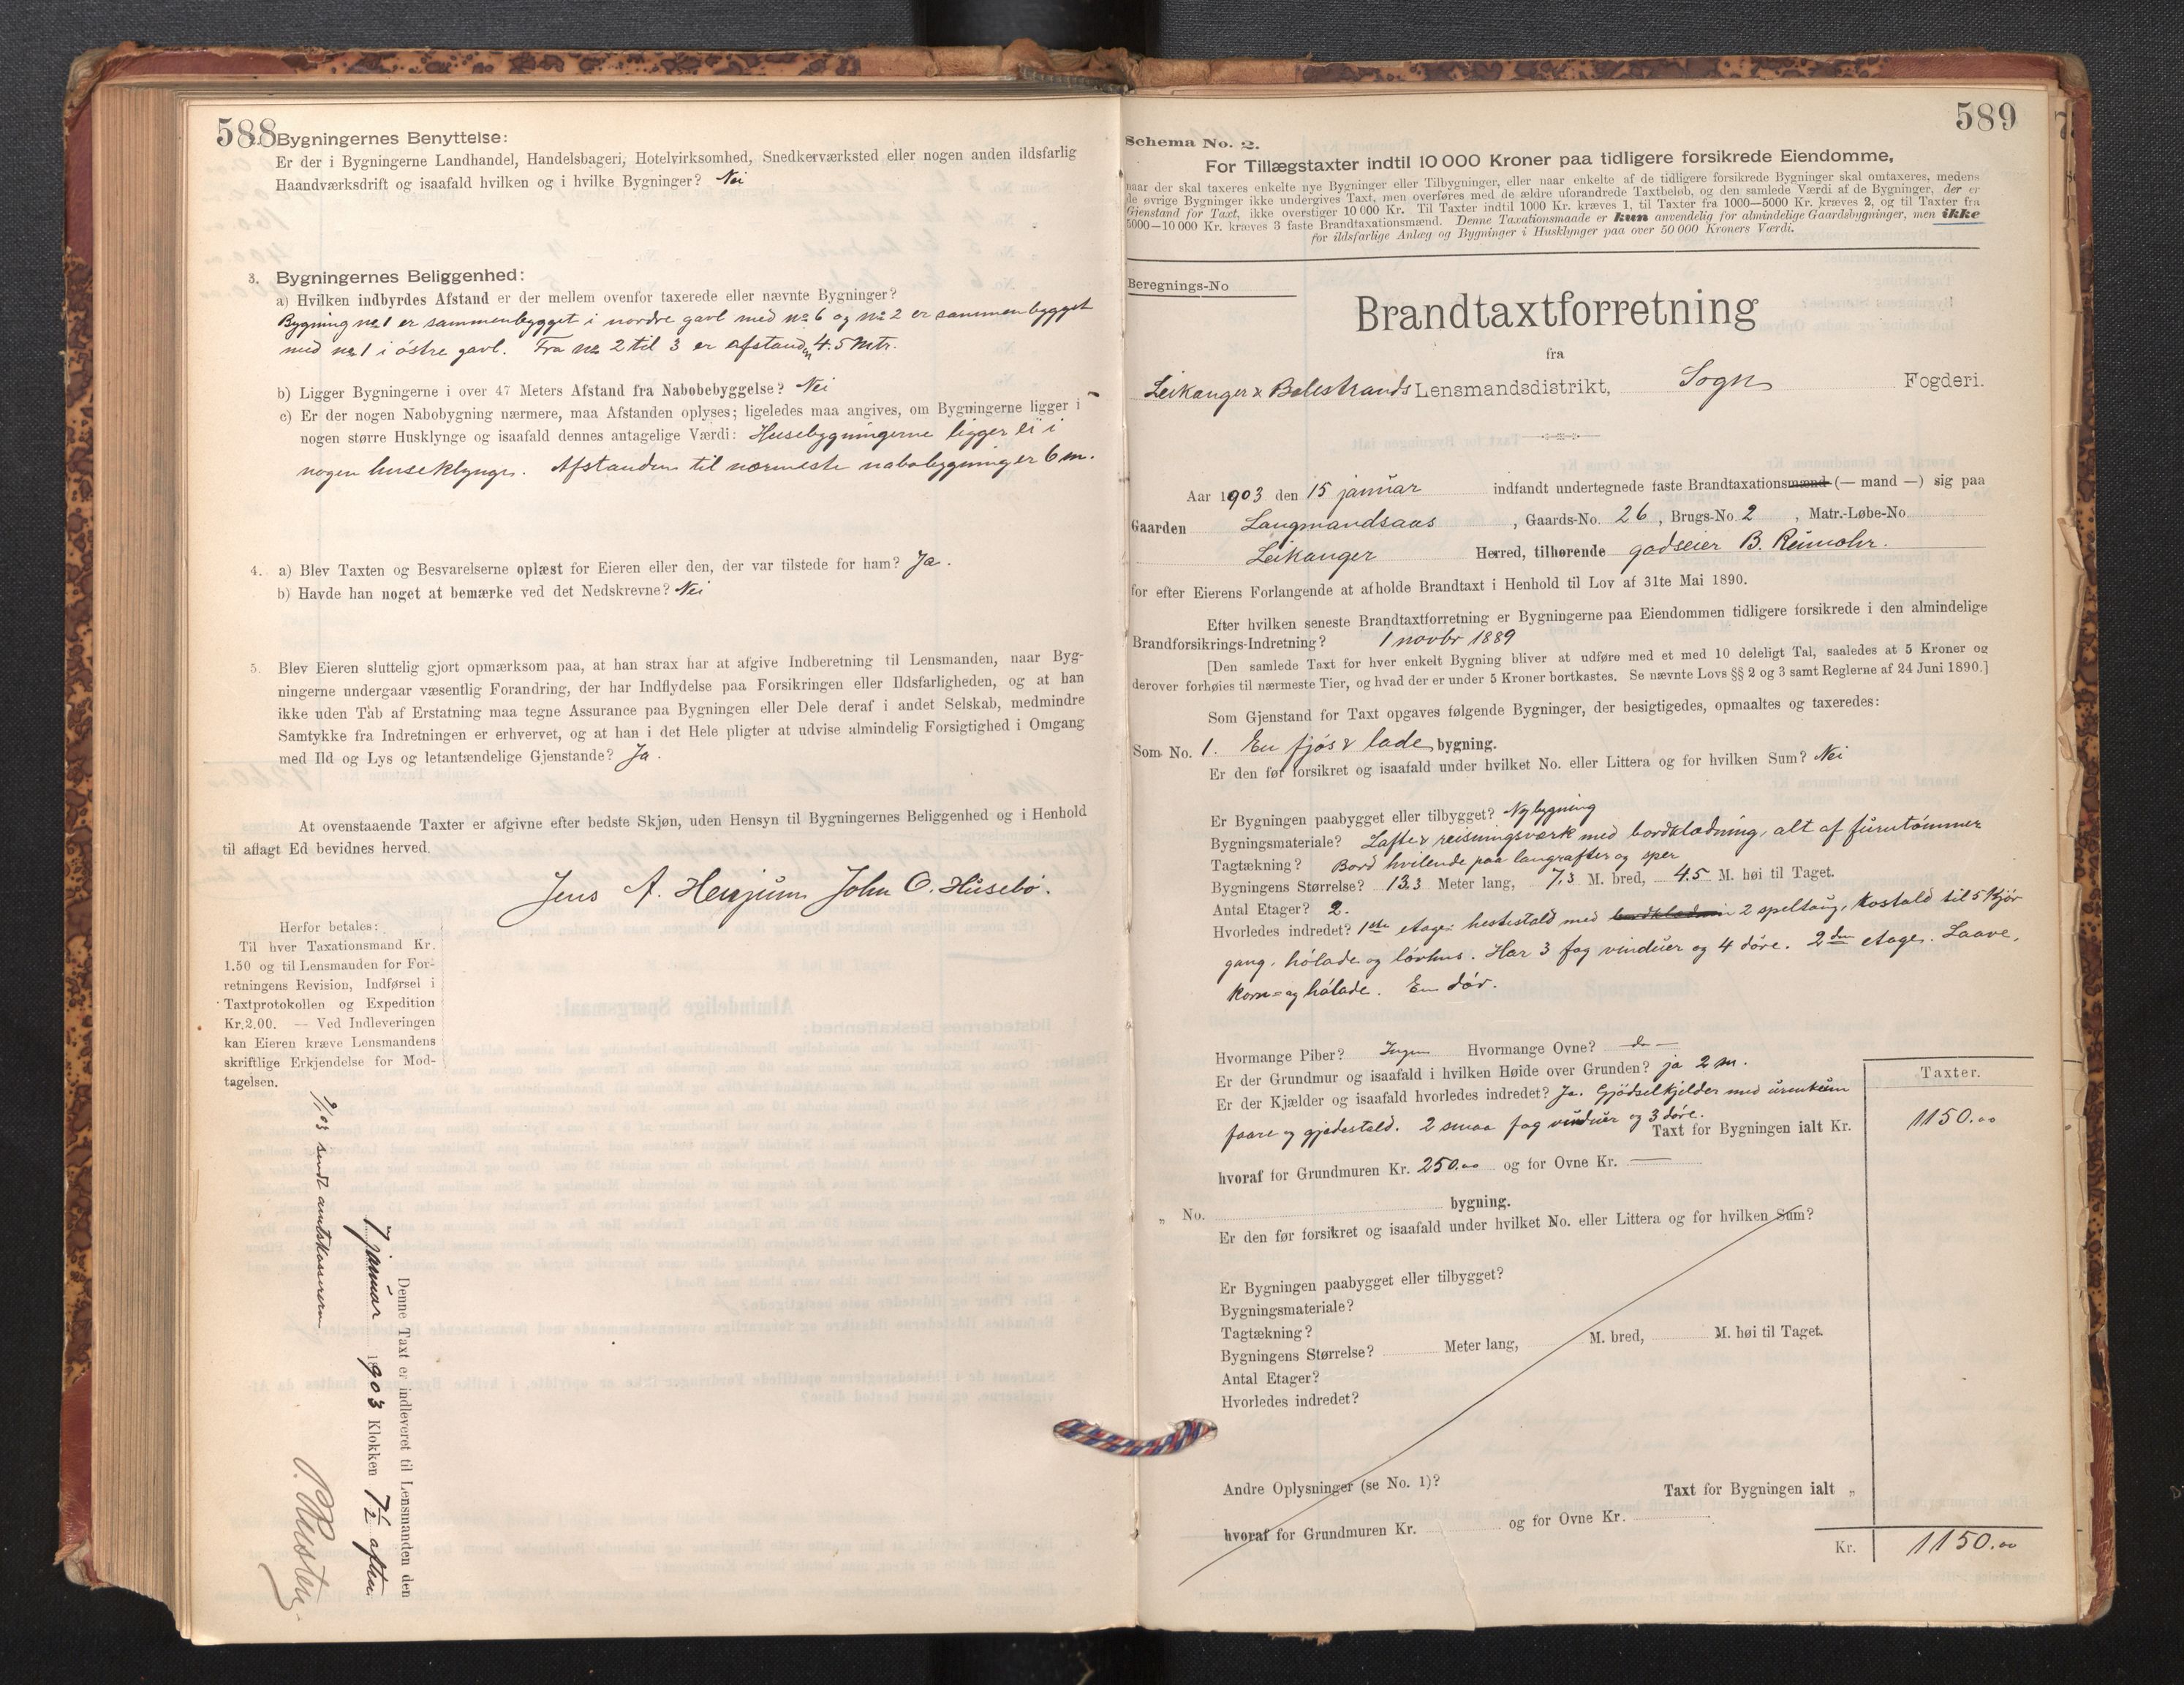 588
2. Bygningernes Benyttelse:
Er der i Bygningerne Landhandel, Handelsbageri, Hotelvirksomhed, Snedkerværksted eller nogen anden ildsfarlig
Haandværksdrift og isaafald hvilken og i hvilke Bygninger? Nei
3. Bygningernes Beliggenhed:
a) Hvilken indbyrdes Afstand er der mellem ovenfor taxerede eller nævnte Bygninger?
Bygning no 1 er sammenbygget i nordre gavl med no 6 og no 2 er sammenbygget
med no 1 i østre gavl. Fra no 2 til 3 er afstanden 4.5 mtr.
b) Ligger Bygningerne i over 47 Meters Afstand fra Nabobebyggelse? Nei
c) Er der nogen Nabobygning nærmere, maa Afstanden oplyses; ligeledes maa angives, om Bygningerne ligger i
nogen større Husklynge og isaafald dennes antagelige Værdi: Husebygningerne ligger ei i
nogen huseklynge. Afstanden til nærmeste nabobygning er 6 m.
4. a) Blev Taxten og Besvarelserne oplæst for Eieren eller den, der var tilstede for ham? Ja.
b) Havde han noget at bemærke ved det Nedskrevne? Nei
5. Blev Eieren sluttelig gjort opmærksom paa, at han strax har at afgive Indberetning til Lensmanden, naar Byg-
ningerne undergaar væsentlig Forandring, der har Indflydelse paa Forsikringen eller Ildsfarligheden, og at han
ikke uden Tab af Erstatning maa tegne Assurance paa Bygningen eller Dele deraf i andet Selskab, medmindre
Samtykke fra Indretningen er erhvervet, og at han i det Hele pligter at udvise almindelig Forsigtighed i Omgang
med Ild og Lys og letantændelige Gjenstande? Ja.
At ovenstaaende Taxter er afgivne efter bedste Skjøn, uden Hensyn til Bygningernes Beliggenhed og i Henhold
til aflagt Ed bevidnes herved.
Jens A. Henjum John O. Husebø.
Herfor betales:
Til hver Taxationsmand Kr.
1.50 og til Lensmanden for For-
retningens Revision, Indførsel i
Taxtprotokollen og Expedition
Kr. 2.00. — Ved Indleveringen
kan Eieren kræve Lensmandens
skriftlige Erkjendelse for Mod-
tagelsen.
Denne Taxt er indleveret til Lensmanden den
7 januar 1903 Klokken 7½ aften
9/1 03 sendt amtskassereren
589
Schema No. 2.
For Tillægstaxter indtil 10 000 Kroner paa tidligere forsikrede Eiendomme,
naar der skal taxeres enkelte nye Bygninger eller Tilbygninger, eller naar enkelte af de tidligere forsikrede Bygninger skal omtaxeres, medens
de øvrige Bygninger ikke undergives Taxt, men overføres med de ældre uforandrede Taxtbeløb, og den samlede Værdi af de Bygninger, der er
Gjenstand for Taxt, ikke overstiger 10 000 Kr. Til Taxter indtil 1000 Kr. kræves 1, til Taxter fra 1000—5000 Kr. kræves 2, og til Taxter fra
5000—10 000 Kr. kræves 3 faste Brandtaxationsmænd. Denne Taxationsmaade er kun anvendelig for almindelige Gaardsbygninger, men ikke
for ildsfarlige Anlæg og Bygninger i Husklynger paa over 50 000 Kroners Værdi.
Beregnings-No
Brandtaxtforretning
fra
Leikanger & Balestrands Lensmandsdistrikt, Sogn Fogderi.
Aar 1903 den 15 januar indfandt undertegnede faste Brandtaxationsmænd (— mand —) sig paa
Gaarden Langmandsaas, Gaards-No. 26, Brugs-No 2, Matr.-Løbe-No
Leikanger Herred, tilhørende godseier B. Reimohr.
for efter Eierens Forlangende at afholde Brandtaxt i Henhold til Lov af 31te Mai 1890.
Efter hvilken seneste Brandtaxtforretning er Bygningerne paa Eiendommen tidligere forsikrede i den almindelige
Brandforsikrings-Indretning? 1 novbr 1889
[Den samlede Taxt for hver enkelt Bygning bliver at udføre med et med 10 deleligt Tal, saaledes at 5 Kroner og
derover forhøies til nærmeste Tier, og hvad der er under 5 Kroner bortkastes. Se nævnte Lovs §§ 2 og 3 samt Reglerne af 24 Juni 1890.]
Som Gjenstand for Taxt opgaves følgende Bygninger, der besigtigedes, opmaaltes og taxeredes:
Som No. 1. En fjøs & lade bygning.
Er den før forsikret og isaafald under hvilket No. eller Littera og for hvilken Sum? Nei
Er Bygningen paabygget eller tilbygget? Nybygning
Bygningsmateriale? Lafte & reisningsværk med bordklædning, alt af furutømmer
Tagtækning? Bord hvilende paa langrafter og sper
Bygningens Størrelse? 13.3 Meter lang, 7.3 M. bred, 4.5 M. høi til Taget.
Antal Etager? 2.
Hvorledes indredet? 1ste etage: hestestald med 2 speltaug, kostald til 5 kjør
gang, hølade og løvhus. Har 3 fag vinduer og 4 døre. 2den etage. Laave,
korn= og hølade. En dør.
Hvormange Piber? Ingen Hvormange Ovne? do
Er der Grundmur og isaafald i hvilken Høide over Grunden? ja 2 m.
Er der Kjælder og isaafald hvorledes indredet? Ja. Gjødselkjelder med
faare og gjedestald. 2 smaa fag vinduer og 3 døre.
Taxter.
Taxt for Bygningen ialt Kr. 1150.00
hvoraf for Grundmuren Kr. 250.00 og for Ovne Kr. —
„ No. bygning.
Er den før forsikret og isaafald under hvilket No. eller Littera og for hvilken Sum?
Er Bygningen paabygget eller tilbygget?
Bygningsmateriale?
Tagtækning?
Bygningens Størrelse? Meter lang, M. bred, M. høi til Taget.
Antal Etager?
Hvorledes indredet?
Andre Oplysninger (se No. 1)?
Taxt for Bygningen ialt „
hvoraf for Grundmuren Kr. og for Ovne Kr.
Kr. 1150.00